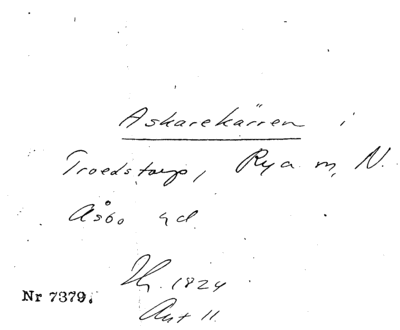 Askarekärren i
Troedstorp, Rya m, N.
Åsbo hd.
1824
Nr 7379.
Akt 11